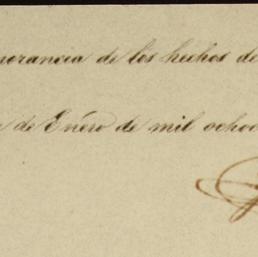 norancia de los hechos de
de Enero de mil ochoc